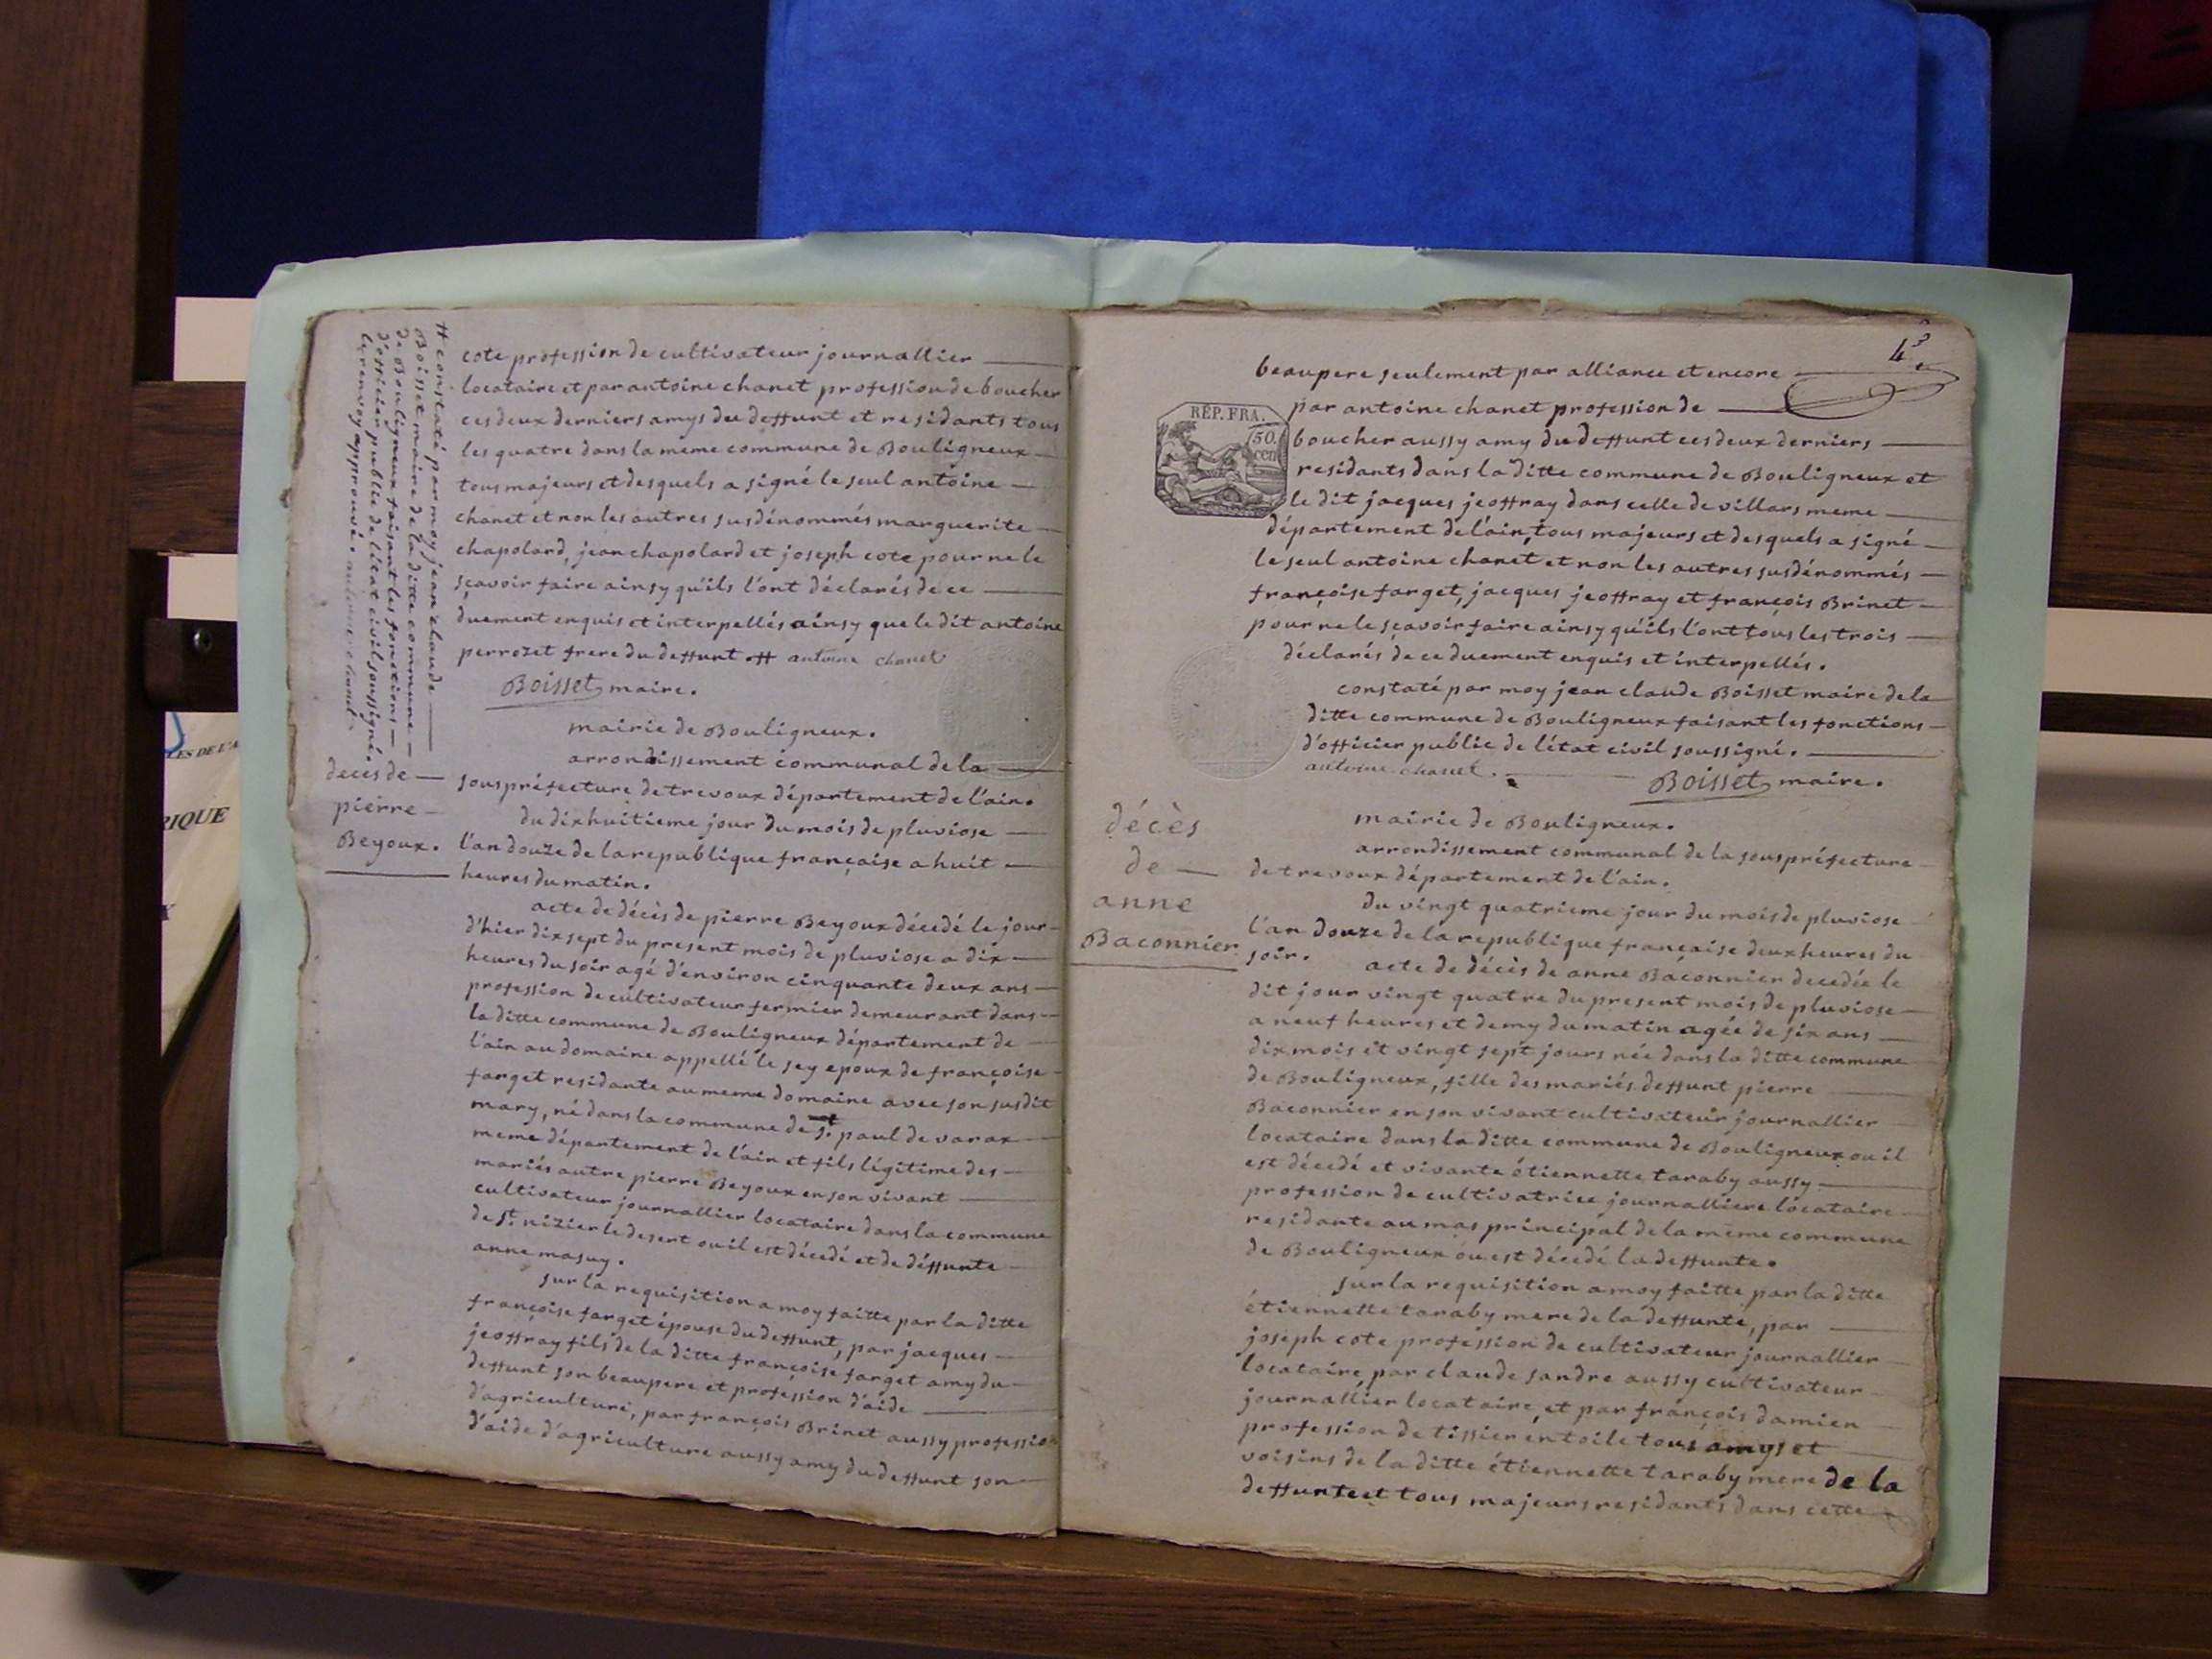 cote profession de cultivateur journallier
locataire et par antoine chanet profession de boucher
ces deux derniers amys du deffunt et residants tous
les quatre dans la meme commune de Bouligneux
tous majeurs et desquels a signé le seul antoine
chanet et non les autres susdénommés marguerite
chapolard, jean chapolard et joseph cote pour ne le
sçavoir faire ainsy qu'ils l'ont déclarés de ce
duement enquis et interpellés ainsy que le dit antoine
perrozet frere du deffunt. # antoine chanet
Boisset maire.
# constaté par moy jean claude
Boisset maire de la ditte commune
de Bouligneux faisant les fonctions
d'officier public de l'état civil soussigné.
le renvoy approuvé. antoine chanet
mairie de Bouligneux.
arrondissement communal de la
souspréfecture de trevoux département de l'ain.
decès de
pierre
Beyoux.
du dixhuitieme jour du mois de pluviose
l'an douze de la republique française a huit
heures du matin.
acte de décès de pierre Beyoux décedé le jour
d'hier dix sept du present mois de pluviose a dix
heures du soir agé d'environ cinquante deux ans
profession de cultivateur fermier demeurant dans
la ditte commune de Bouligneux département de
l'ain au domaine appellé le sey epoux de françoise
farget residante au meme domaine avec son susdit
mary, né dans la commune de st. paul de varax
meme département de l'ain et fils légitime des
mariés autre pierre Beyoux en son vivant
cultivateur journallier locataire dans la commune
de st. nizier le desert ou il est décedé et de déffunte
anne masuy.
sur la requisition a moy faitte par la ditte
françoise farget épouse du deffunt, par jacques
jeoffray fils de la ditte françoise farget amy du
deffunt son beaupere et profession d'aide
d'agriculture, par françois Brinet aussy profession
d'aide d'agriculture aussy amy du deffunt son
4
beaupere seulement par alliance et encore
RÉP. FRA.
50.
cen
par antoine chanet profession de
boucher aussy amy du deffunt ces deux derniers
residants dans la ditte commune de Bouligneux et
le dit jacques jeoffray dans celle de villars meme
département de l'ain, tous majeurs et desquels a signé
le seul antoine chanet et non les autres susdénommés
françoise farget, jacques jeoffray et françois Brinet
pour ne le sçavoir faire ainsy qu'ils l'ont tous les trois
déclarés de ce duement enquis et interpellés.
constaté par moy jean claude Boisset maire de la
ditte commune de Bouligneux faisant les fonctions
d'officier public de l'état civil soussigné.
antoine chanet.
Boisset maire.
mairie de Bouligneux.
arrondissement communal de la souspréfecture
de trevoux département de l'ain.
décès
de
anne
Baconnier
du vingt quatrieme jour du mois de pluviose
l'an douze de la republique française deux heures du
soir.
acte de décès de anne Baconnier decedée le
dit jour vingt quatre du present mois de pluviose
a neuf heures et demy du matin agée de six ans
dix mois et vingt sept jours née dans la ditte commune
de Bouligneux, fille des mariés deffunt pierre
Baconnier en son vivant cultivateur journallier
locataire dans la ditte commune de Bouligneux ou il
est décedé et vivante étiennette taraby aussy
profession de cultivatrice journalliere locataire
residante au mas principal de la meme commune
de Bouligneux ou est décedé la deffunte.
sur la requisition a moy faitte par la ditte
étiennette taraby mere de la deffunte, par
joseph cote profession de cultivateur journallier
locataire, par claude sandre aussy cultivateur
journallier locataire, et par françois damien
profession de tissier en toile tous amys et
voisins de la ditte étiennette taraby mere de la
deffunte et tous majeurs residants dans cette
RIQUE